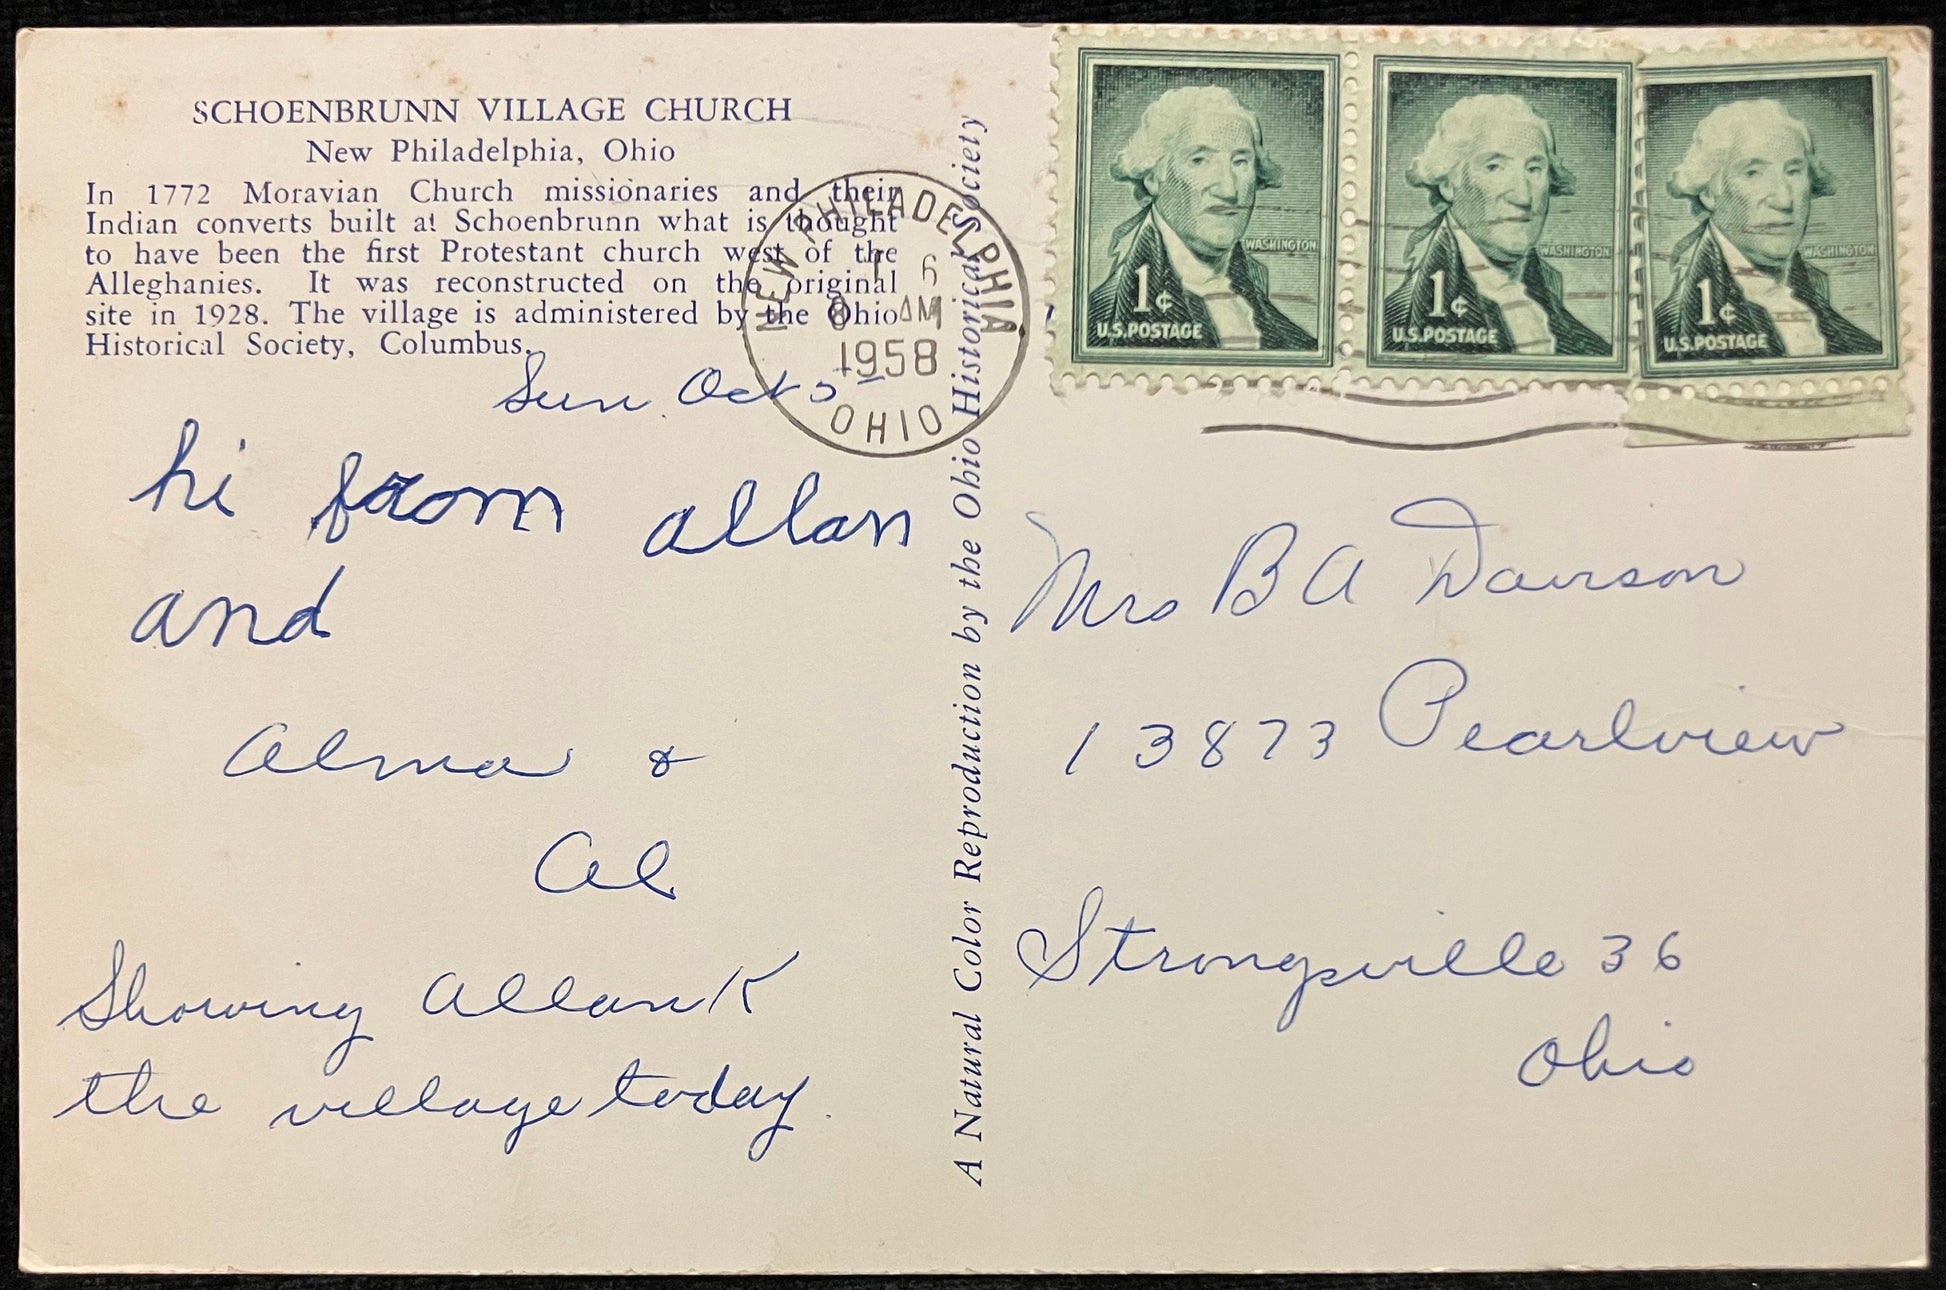 SCHOENBRUNN VILLAGE CHURCH
New Philadelphia, Ohio
In 1772 Moravian Church missionaries and their
Indian converts built at Schoenbrunn what is thought
to have been the first Protestant church west of the
Alleghanies. It was reconstructed on the original
site in 1928. The village is administered by the Ohio
Historical Society, Columbus.
Sun. Oct 5
hi from allan
and
Alma &
Al
Showing Allan K
the village today.
A Natural Color Reproduction by the Ohio Historical Society
NEW PHILADELPHIA.
6
8 AM
1958
OHIO
WASHINGTON
1¢
U.S. POSTAGE
WASHINGTON
1¢
U.S. POSTAGE
WASHINGTON
1¢
U.S. POSTAGE
Mrs B A Dawson
13873 Pearlview
Strongsville 36
Ohio